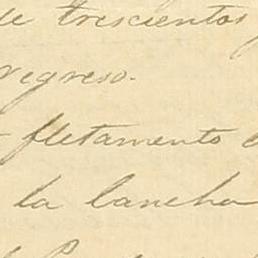 de trescientos
regreso.
fletamento
la lancha